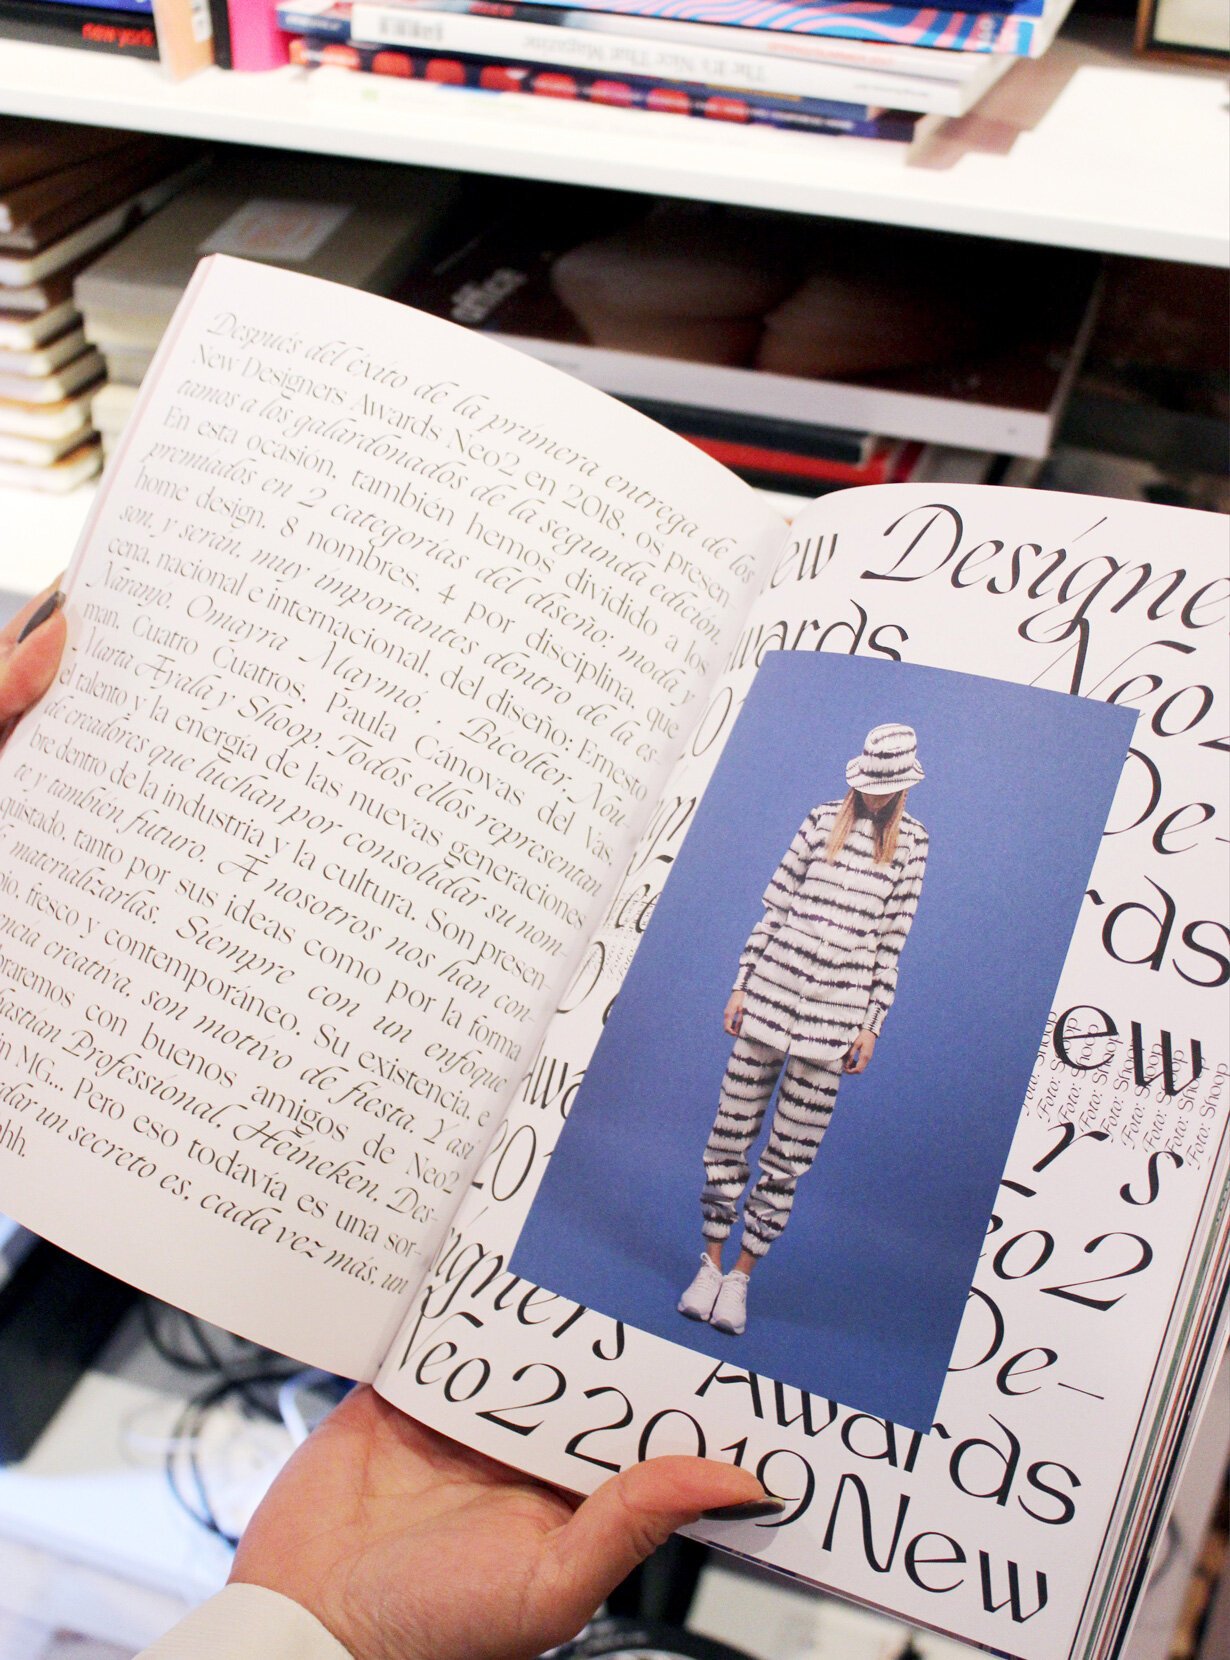 The It's Nice That Magazine
office
Después del éxito de la primera entrega de los
New Designers Awards Neo2 en 2018, os presen-
tamos a los galardonados de la segunda edición.
En esta ocasión, también hemos dividido a los
premiados en 2 categorías del diseño: moda y
home design. 8 nombres, 4 por disciplina, que
son, y serán, muy importantes dentro de la es-
cena, nacional e internacional, del diseño: Ernesto
Naranjo, Omayra Maymó, , Bicolter, Nou-
man, Cuatro Cuatros, Paula Cánovas del Vas,
Marta Ayala y Shoop. Todos ellos representan
el talento y la energía de las nuevas generaciones
de creadores que luchan por consolidar su nom-
bre dentro de la industria y la cultura. Son presen-
te y también futuro. A nosotros nos han con-
quistado, tanto por sus ideas como por la forma
materializarlas. Siempre con un enfoque
pio, fresco y contemporáneo. Su existencia, e
encia creativa, son motivo de fiesta. Y así
braremos con buenos amigos de Neo2
bastián Professional, Heineken, Des-
in MG... Pero eso todavía es una sor-
dar un secreto es, cada vez más, un
hh.
ew Designe
wards Neo2
De-
rds
ew
rs
eo2
De-
igners Awards
Neo2 2019 New
Foto: Shoop
Foto: Shoop
Foto: Shoop
Foto: Shoop
Foto: Shoop
Foto: Shoop
Foto: Shoop
Foto: Shoop